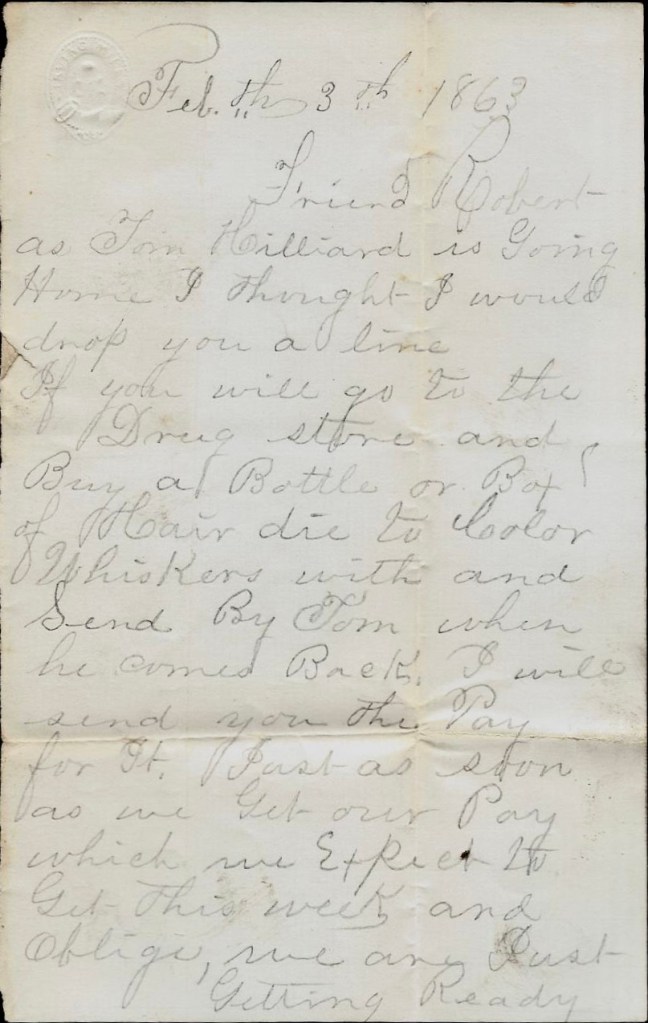 Feb. th 3th 1863
Friend Robert
as Tom Hilliard is Going
Home I thought I would
drop you a line
If you will go to the
Drug store and
Buy a Bottle or Box
of Hair die to Color
Whiskers with and
Send By Tom when
he comes Back. I will
send you the Pay
for It. Just as soon
as we Get our Pay
which we Expect to
Get this week and
Oblige, we are Just
Getting Ready